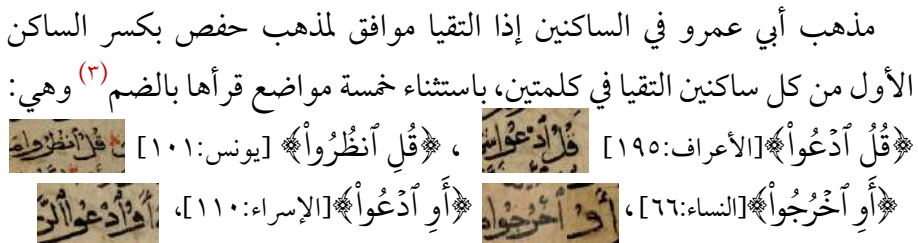 مذهب أبي عمرو في الساكنين إذا التقيا موافق لمذهب حفص بكسر الساكن
الأول من كل ساكنين التقيا في كلمتين، باستثناء خمسة مواضع قرأها بالضم(٣) وهي:
﴿قُلُ ٱدۡعُواْ﴾[الأعراف:١٩٥] قُلُ ادْعُوا ، ﴿قُلِ ٱنظُرُواْ﴾ [يونس:١٠١] قل انظروا
﴿أَوِ ٱخۡرُجُواْ﴾[النساء:٦٦]، أو اخرجوا ﴿أَوِ ٱدۡعُواْ﴾[الإسراء:١١٠]، أو ادعوا